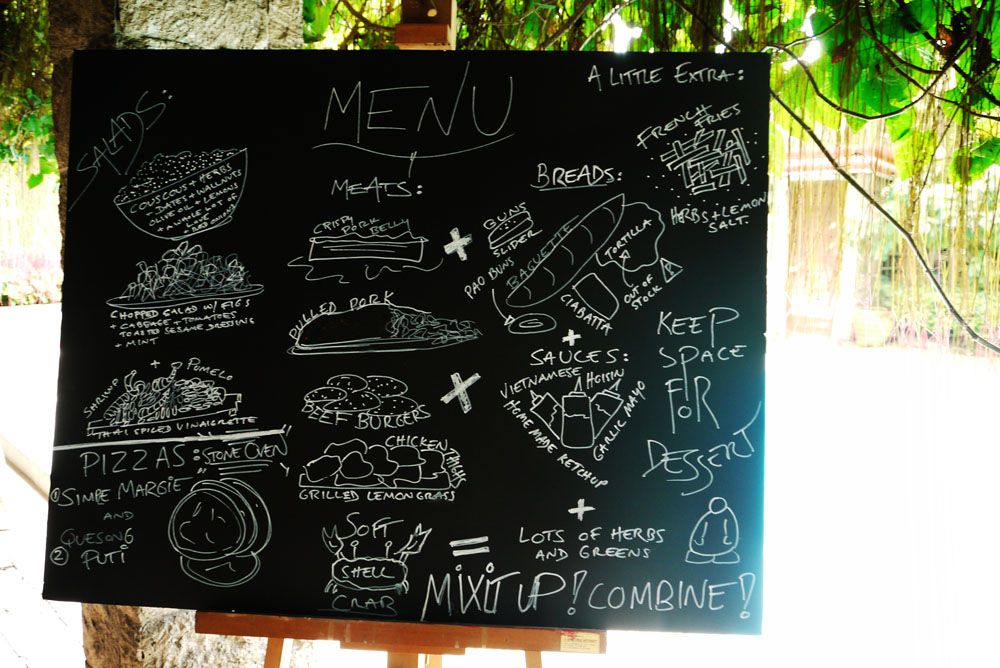 MENU
SALADS:
COUSCOUS + HERBS
+ DATES + WALLNUTS
OLIVE OIL + LEMONS
+ A WHOLE LOT OF
RED ONIONS
CHOPPED SALAD W/ FIGS
+ CABBAGE + TOMATOES
TOASTED SESAME DRESSING
+ MINT
SHRIMP + POMELO
THAI SPICED VINAIGRETTE
PIZZAS: STONE OVEN
① SIMPLE MARGIE
AND
QUESONG
② PUTI
MEATS:
CRISPY
PORK
BELLY
PULLED PORK
BEEF BURGERS
CHICKEN THIGH
GRILLED LEMONGRASS
SOFT
SHELL
CRAB
+
+
=
BREADS:
BUNS
SLIDER
PAO BUNS
BAGUETTE
TORTILLA
OUT OF
STOCK!
CIABATTA
+
SAUCES:
VIETNAMESE HOISIN
HOME MADE KETCHUP
GARLIC MAYO
+
LOTS OF HERBS
AND GREENS
MIX IT UP! COMBINE!
A LITTLE EXTRA:
FRENCH
FRIES
HERBS + LEMON
SALT.
KEEP
SPACE
FOR
DESSERT